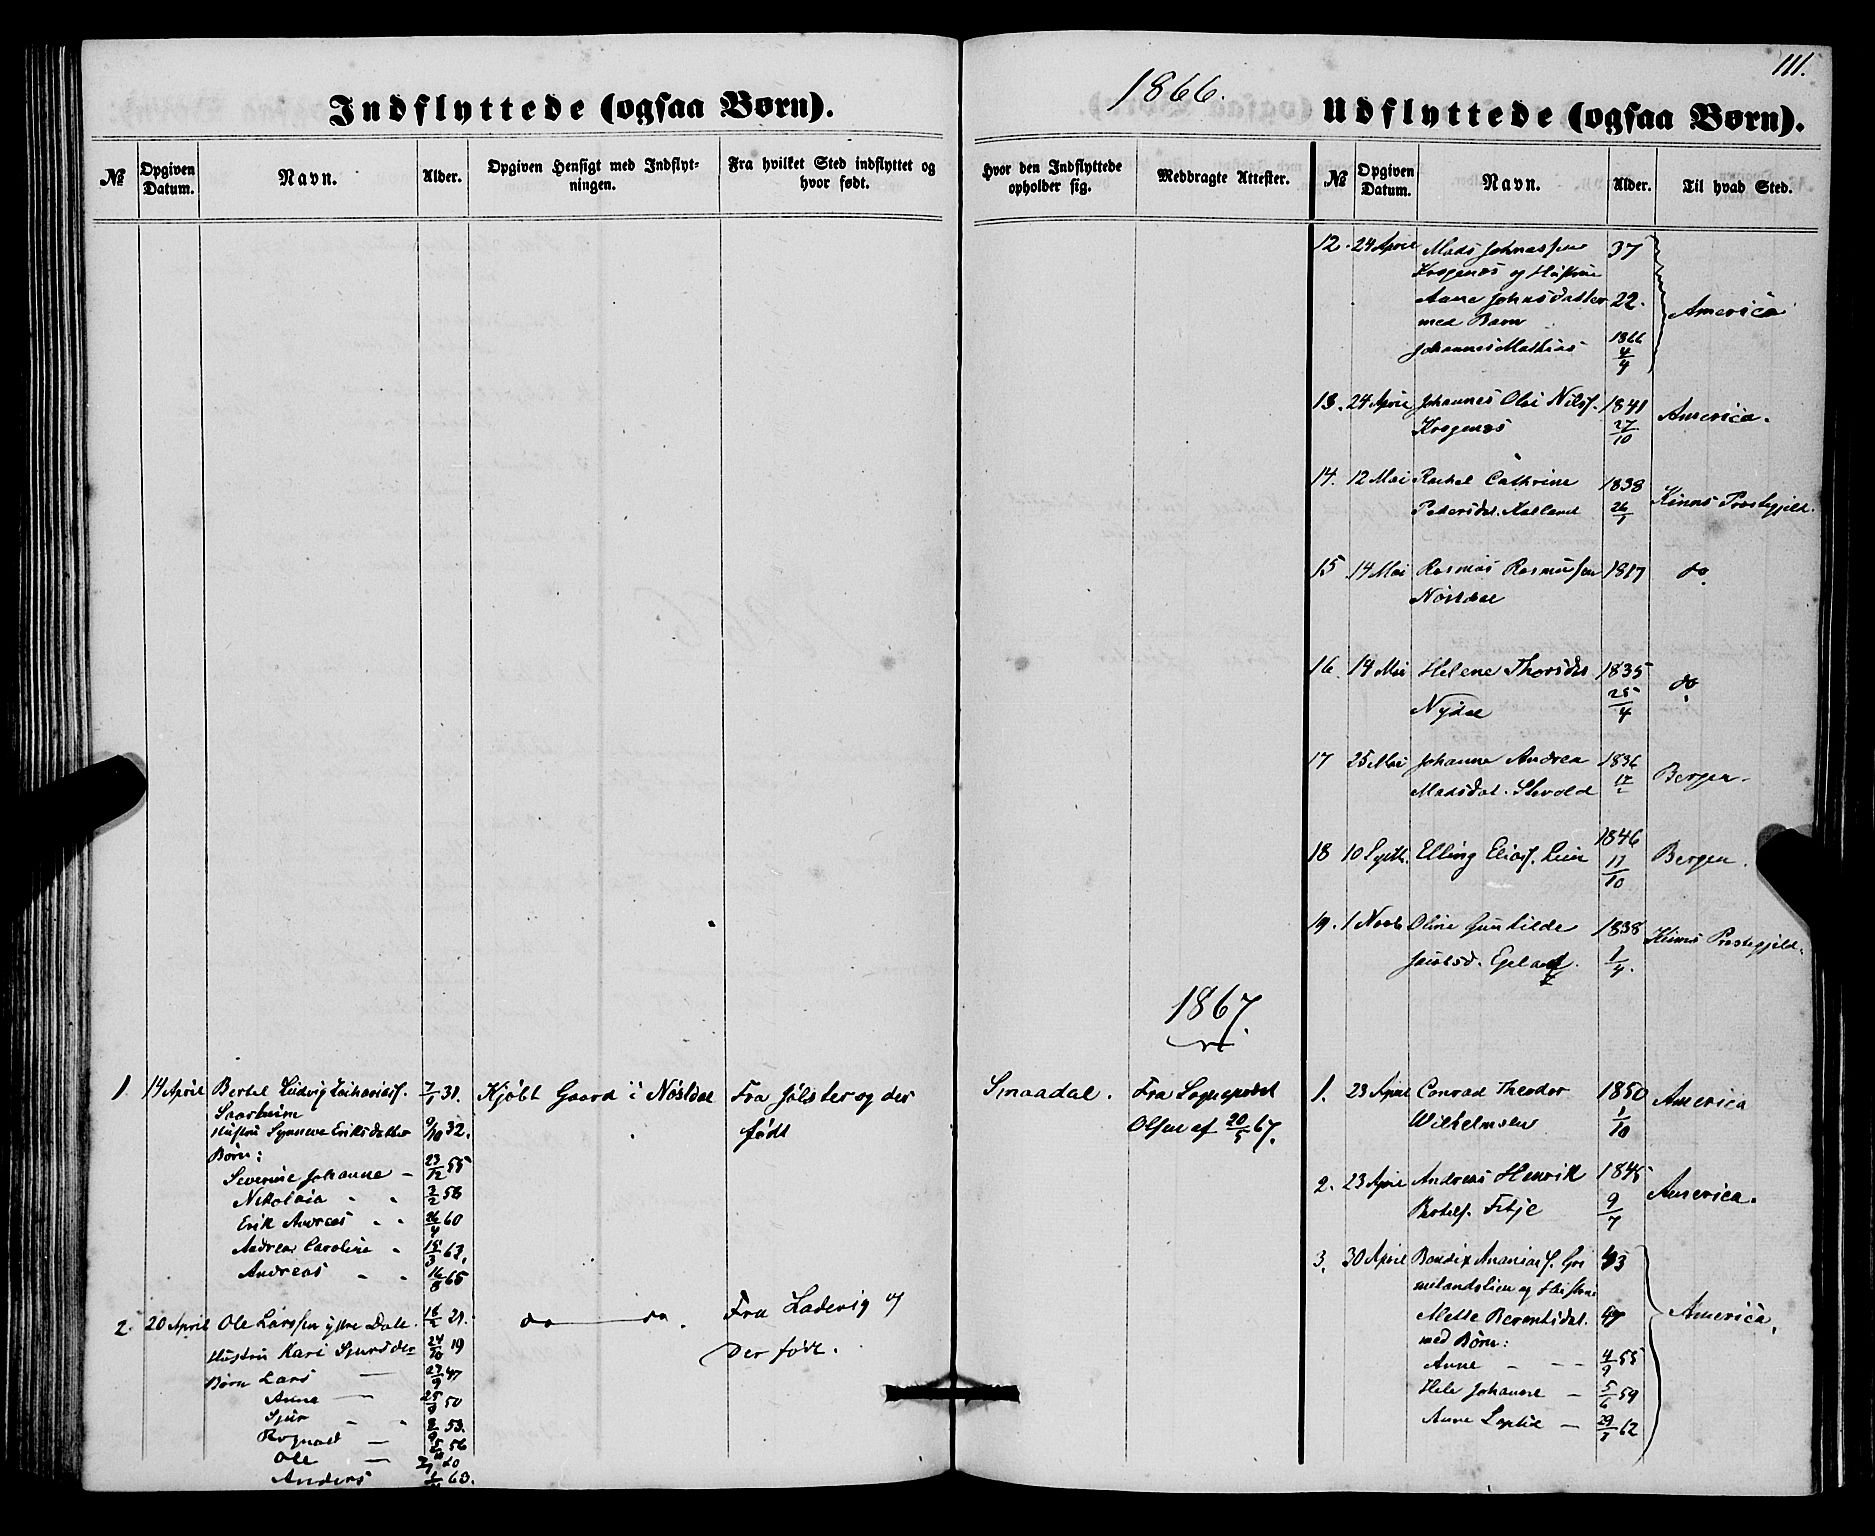 111.
1866.
Indflyttede (ogsaa Børn).
Udflyttede (ogsaa Børn).
№ Opgiven Datum. Navn. Alder. Opgiven Hensigt med Indflyt-
ningen. Fra hvilket Sted indflyttet og
hvor født.
Hvor den Indflyttede
opholder sig. Meddragte Attester. № Opgiven Datum. Navn. Alder. Til hvad Sted.
12. 24 April Mads Johnassen 37
Krogenæs og Hustrue
Anne Johnsdatter 22. America
med Barn
Johannes Mathias 1866 4/4
13. 24 April Johannes Olai Nilss. 1841 America.
Krogenæs 27/10
14. 12 Mai Rachel Cathrine 1838 Kinns Præstegjeld.
Pedersdat. 26/1
15 14 Mai Rasmus Rasmussen 1817 do
Nøstdal
16. 14 Mai Helene Thorsdat 1835 do
Nydal 25/4
17 25 Mai Johanne Andrea 1836 Bergen.
Madsdat. Stavold
18 10 Septb. Elling Eliass. Lien 1846 Bergen.
11/10
19. 1 Novb Oline Gunhilde 1838 Kinns Præstegjeld.
Jacobsd. 1/4.
1867
1. 14 April Bertel Ludvig Zachariass. 7/1 31. Kjøbt Gaard i Nøstdal Fra Jølster og der
født
Smaadal. Fra Sogneprest
Olsen af 20/5 67.
Hustru Synneve Eriksdatter 9/10 32.
Børn:
Severine Johanne - 23/12 55
Nikolaia " " 2/2 58
Erik Andreas " " 26/4 60
Andrea Caroline " 15/3 63.
Andreas " " 65
2. 20 April Ole Larssen ytre Dale. 21. do do. Fra Ladevig og
der født.
Hustru Kari Sjursdtr 24/10 19
Børn Lars — 27/9 47
Anne — 25/9 50
Sjur " " 53.
Rognald — 56
Ole —
Anders 63.
1. 23 April Conrad Theodor 1850 America
Wilhelmsen 1/10
2. 23 April Andreas Henrik 1845 America.
Bertels. Fitje 9/7
3. 30 April Bendix Ananiass. Gri 43
melandslien og Hustrue
Mette Berentsdat. 47 America.
med Børn:
Anne - - - 4/9 55
Hele Johanne - 5/6 59
Anne - 29/1 62